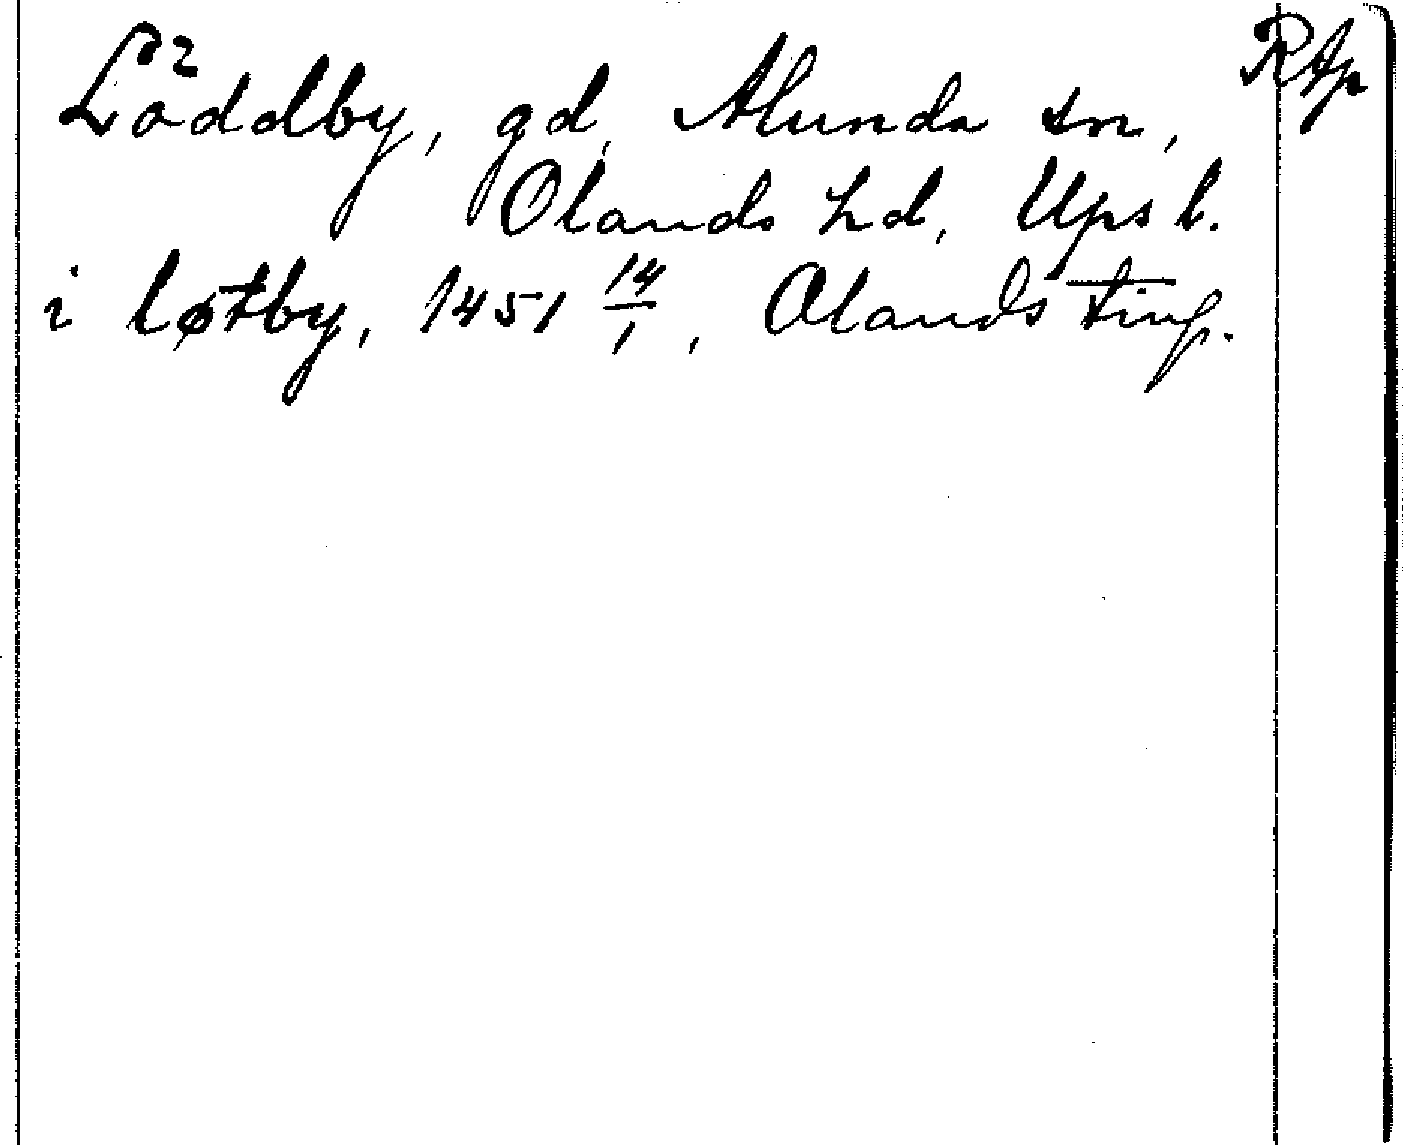 Löddby, gd, Alunda sn, Rtp
Olands hd, Ups l.
i løtby, 1451 14/1, Olands ting.